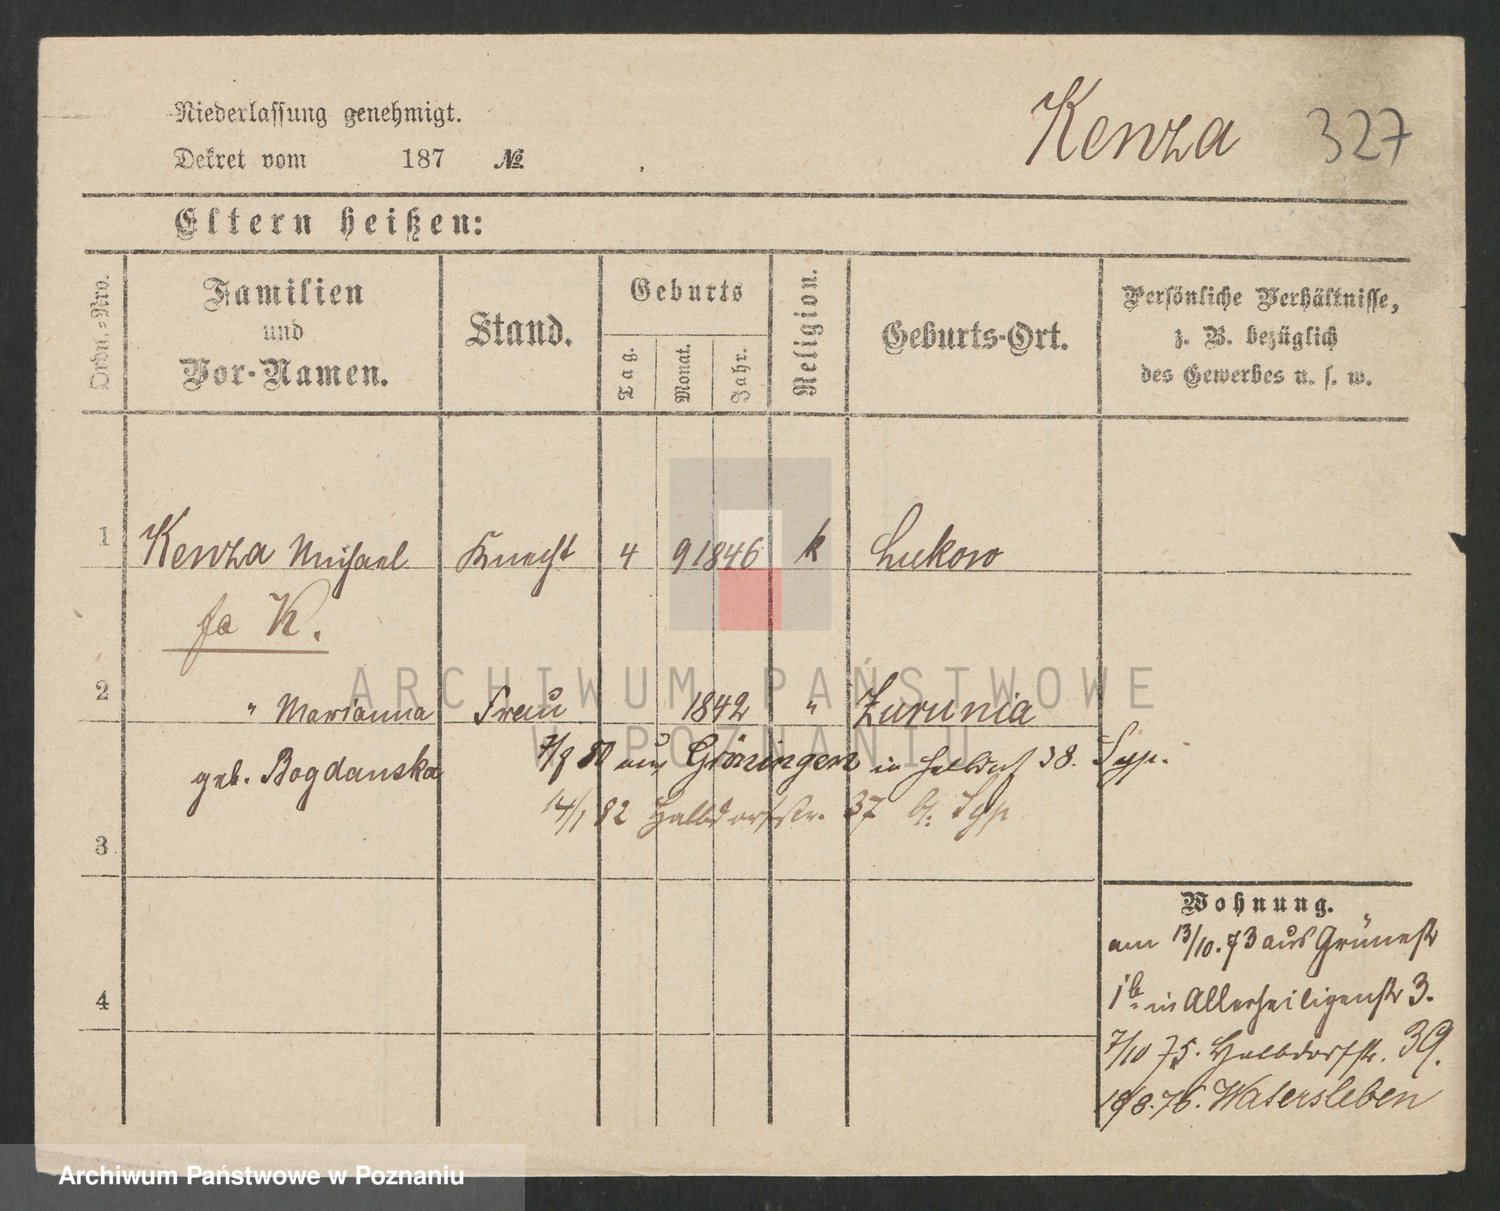 Niederlassung genehmigt.
Kenza 327
Dekret vom 187 №
Eltern heißen:
Ordn.-Nro.
Familien
und
Vor-Namen.
Stand.
Geburts
Tag.
Monat.
Jahr.
Religion.
Geburts-Ort.
Persönliche Verhältnisse,
z. B. bezüglich
des Gewerbes u. s. w.
1 Kenza Michael Knecht 4 9 1846 k Lukowo
fa K.
2 " Marianna Frau 1842 " Zurunia
geb. Bogdanska
7/8 80 aus Gröningen in Halbdorf 38.
14/1 82 Halbdorfstr. 37
3
4
Wohnung.
am 13/10. 73 aus Grünestr
in Allerheiligenstr 3.
7/10 75. Halbdorfstr. 39.
18/8. 76. Watersleben
ARCHIWUM PAŃSTWOWE
W POZNANIU
Archiwum Państwowe w Poznaniu